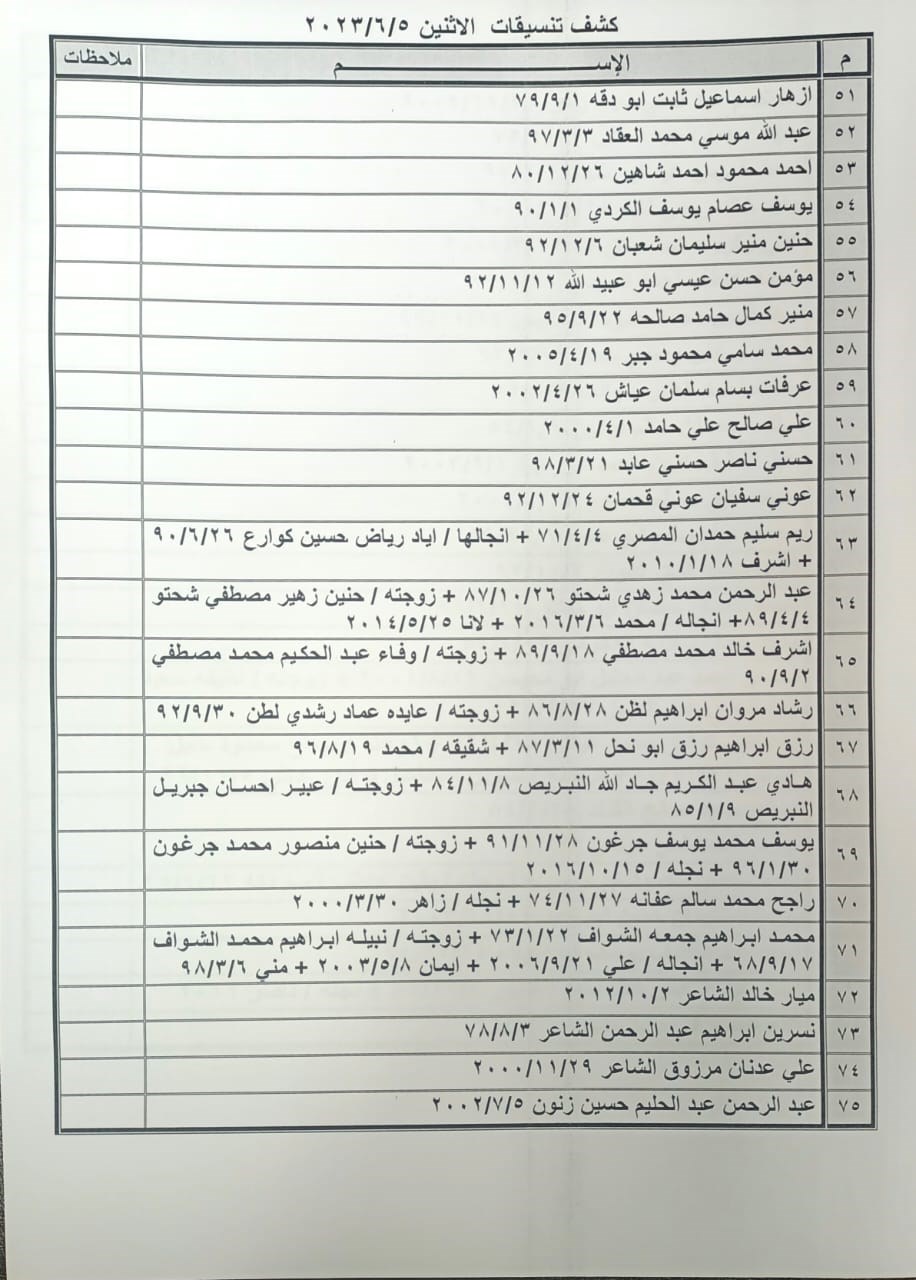 كشف تنسيقات الاثنين ٢٠٢٣/٦/٥
م الإســـــــم ملاحظات
٥١ ازهار اسماعيل ثابت ابو دقه ٧٩/٩/١
٥٢ عبد الله موسي محمد العقاد ٩٧/٣/٣
٥٣ احمد محمود احمد شاهين ٨٠/١٢/٢٦
٥٤ يوسف عصام يوسف الكردي ٩٠/١/١
٥٥ حنين منير سليمان شعبان ٩٢/١٢/٦
٥٦ مؤمن حسن عيسي ابو عبيد الله ٩٢/١١/١٢
٥٧ منير كمال حامد صالحه ٩٥/٩/٢٢
٥٨ محمد سامي محمود جبر ٢٠٠٥/٤/١٩
٥٩ عرفات بسام سلمان عياش ٢٠٠٢/٤/٢٦
٦٠ علي صالح علي حامد ٢٠٠٠/٤/١
٦١ حسني ناصر حسني عابد ٩٨/٣/٢١
٦٢ عوني سفيان عوني قحمان ٩٢/١٢/٢٤
٦٣ ريم سليم حمدان المصري ٧١/٤/٤ + انجالها / اياد رياض حسين كوارع ٩٠/٦/٢٦
+ اشرف ٢٠١٠/١/١٨
٦٤ عبد الرحمن محمد زهدي شحتو ٨٧/١٠/٢٦ + زوجته / حنين زهير مصطفي شحتو
٨٩/٤/٤+ انجاله / محمد ٢٠١٦/٣/٦ + لانا ٢٠١٤/٥/٢٥
٦٥ اشرف خالد محمد مصطفي ٨٩/٩/١٨ + زوجته / وفاء عبد الحكيم محمد مصطفي
٩٠/٩/٢
٦٦ رشاد مروان ابراهيم لظن ٨٦/٨/٢٨ + زوجته / عايده عماد رشدي لطن ٩٢/٩/٣٠
٦٧ رزق ابراهيم رزق ابو نحل ٨٧/٣/١١ + شقيقه / محمد ٩٦/٨/١٩
٦٨ هادي عبد الكريم جاد الله النبريص ٨٤/١١/٨ + زوجته / عبير احسان جبريل
النبريص ٨٥/١/٩
٦٩ يوسف محمد يوسف جرغون ٩١/١١/٢٨ + زوجته / حنين منصور محمد جرغون
٩٦/١/٣٠ + نجله / ٢٠١٦/١٠/١٥
٧٠ راجح محمد سالم عفانه ٧٤/١١/٢٧ + نجله / زاهر ٢٠٠٠/٣/٣٠
٧١ محمد ابراهيم جمعه الشواف ٧٣/١/٢٢ + زوجته / نبيله ابراهيم محمد الشواف
٦٨/٩/١٧ + انجاله / علي ٢٠٠٦/٩/٢١ + ايمان ٢٠٠٣/٥/٨ + مني ٩٨/٣/٦
٧٢ ميار خالد الشاعر ٢٠١٢/١٠/٢
٧٣ نسرين ابراهيم عبد الرحمن الشاعر ٧٨/٨/٣
٧٤ علي عدنان مرزوق الشاعر ٢٠٠٠/١١/٢٩
٧٥ عبد الرحمن عبد الحليم حسين زنون ٢٠٠٢/٧/٥